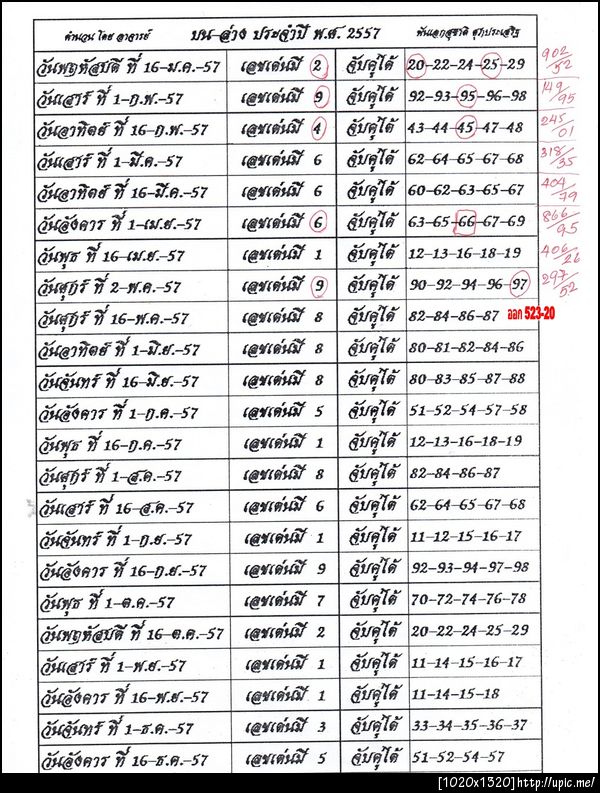 คำนวน โดย อาจารย์ บน-ล่าง ประจำปี พ.ศ. 2557 พันเอกสุชาติ สุภประเสริฐ
วันพฤหัสบดี ที่ 16-ม.ค.-57 เลขเด่นมี 2 จับคู่ได้ 20-22-24-25-29 902/52
วันเสาร์ ที่ 1-ก.พ.-57 เลขเด่นมี 9 จับคู่ได้ 92-93-95-96-98 149/95
วันอาทิตย์ ที่ 16-ก.พ.-57 เลขเด่นมี 4 จับคู่ได้ 43-44-45-47-48 245/01
วันเสาร์ ที่ 1-มี.ค.-57 เลขเด่นมี 6 จับคู่ได้ 62-64-65-67-68 318/35
วันอาทิตย์ ที่ 16-มี.ค.-57 เลขเด่นมี 6 จับคู่ได้ 60-62-63-65-67 404/79
วันอังคาร ที่ 1-เม.ย.-57 เลขเด่นมี 6 จับคู่ได้ 63-65-66-67-69 866/95
วันพุธ ที่ 16-เม.ย.-57 เลขเด่นมี 1 จับคู่ได้ 12-13-16-18-19 406/26
วันศุกร์ ที่ 2-พ.ค.-57 เลขเด่นมี 9 จับคู่ได้ 90-92-94-96-97 297/52
วันศุกร์ ที่ 16-พ.ค.-57 เลขเด่นมี 8 จับคู่ได้ 82-84-86-87 ออก 523-20
วันอาทิตย์ ที่ 1-มิ.ย.-57 เลขเด่นมี 8 จับคู่ได้ 80-81-82-84-86
วันจันทร์ ที่ 16-มิ.ย.-57 เลขเด่นมี 8 จับคู่ได้ 80-83-85-87-88
วันอังคาร ที่ 1-ก.ค.-57 เลขเด่นมี 5 จับคู่ได้ 51-52-54-57-58
วันพุธ ที่ 16-ก.ค.-57 เลขเด่นมี 1 จับคู่ได้ 12-13-16-18-19
วันศุกร์ ที่ 1-ส.ค.-57 เลขเด่นมี 8 จับคู่ได้ 82-84-86-87
วันเสาร์ ที่ 16-ส.ค.-57 เลขเด่นมี 6 จับคู่ได้ 62-64-65-67-68
วันจันทร์ ที่ 1-ก.ย.-57 เลขเด่นมี 1 จับคู่ได้ 11-12-15-16-17
วันอังคาร ที่ 16-ก.ย.-57 เลขเด่นมี 9 จับคู่ได้ 92-93-94-97-98
วันพุธ ที่ 1-ต.ค.-57 เลขเด่นมี 7 จับคู่ได้ 70-72-74-76-78
วันพฤหัสบดี ที่ 16-ต.ค.-57 เลขเด่นมี 2 จับคู่ได้ 20-22-24-25-29
วันเสาร์ ที่ 1-พ.ย.-57 เลขเด่นมี 1 จับคู่ได้ 11-14-15-16-17
วันอังคาร ที่ 16-พ.ย.-57 เลขเด่นมี 1 จับคู่ได้ 11-14-15-18
วันจันทร์ ที่ 1-ธ.ค.-57 เลขเด่นมี 3 จับคู่ได้ 33-34-35-36-37
วันอังคาร ที่ 16-ธ.ค.-57 เลขเด่นมี 5 จับคู่ได้ 51-52-54-57
[1020x1320]http://upic.me/